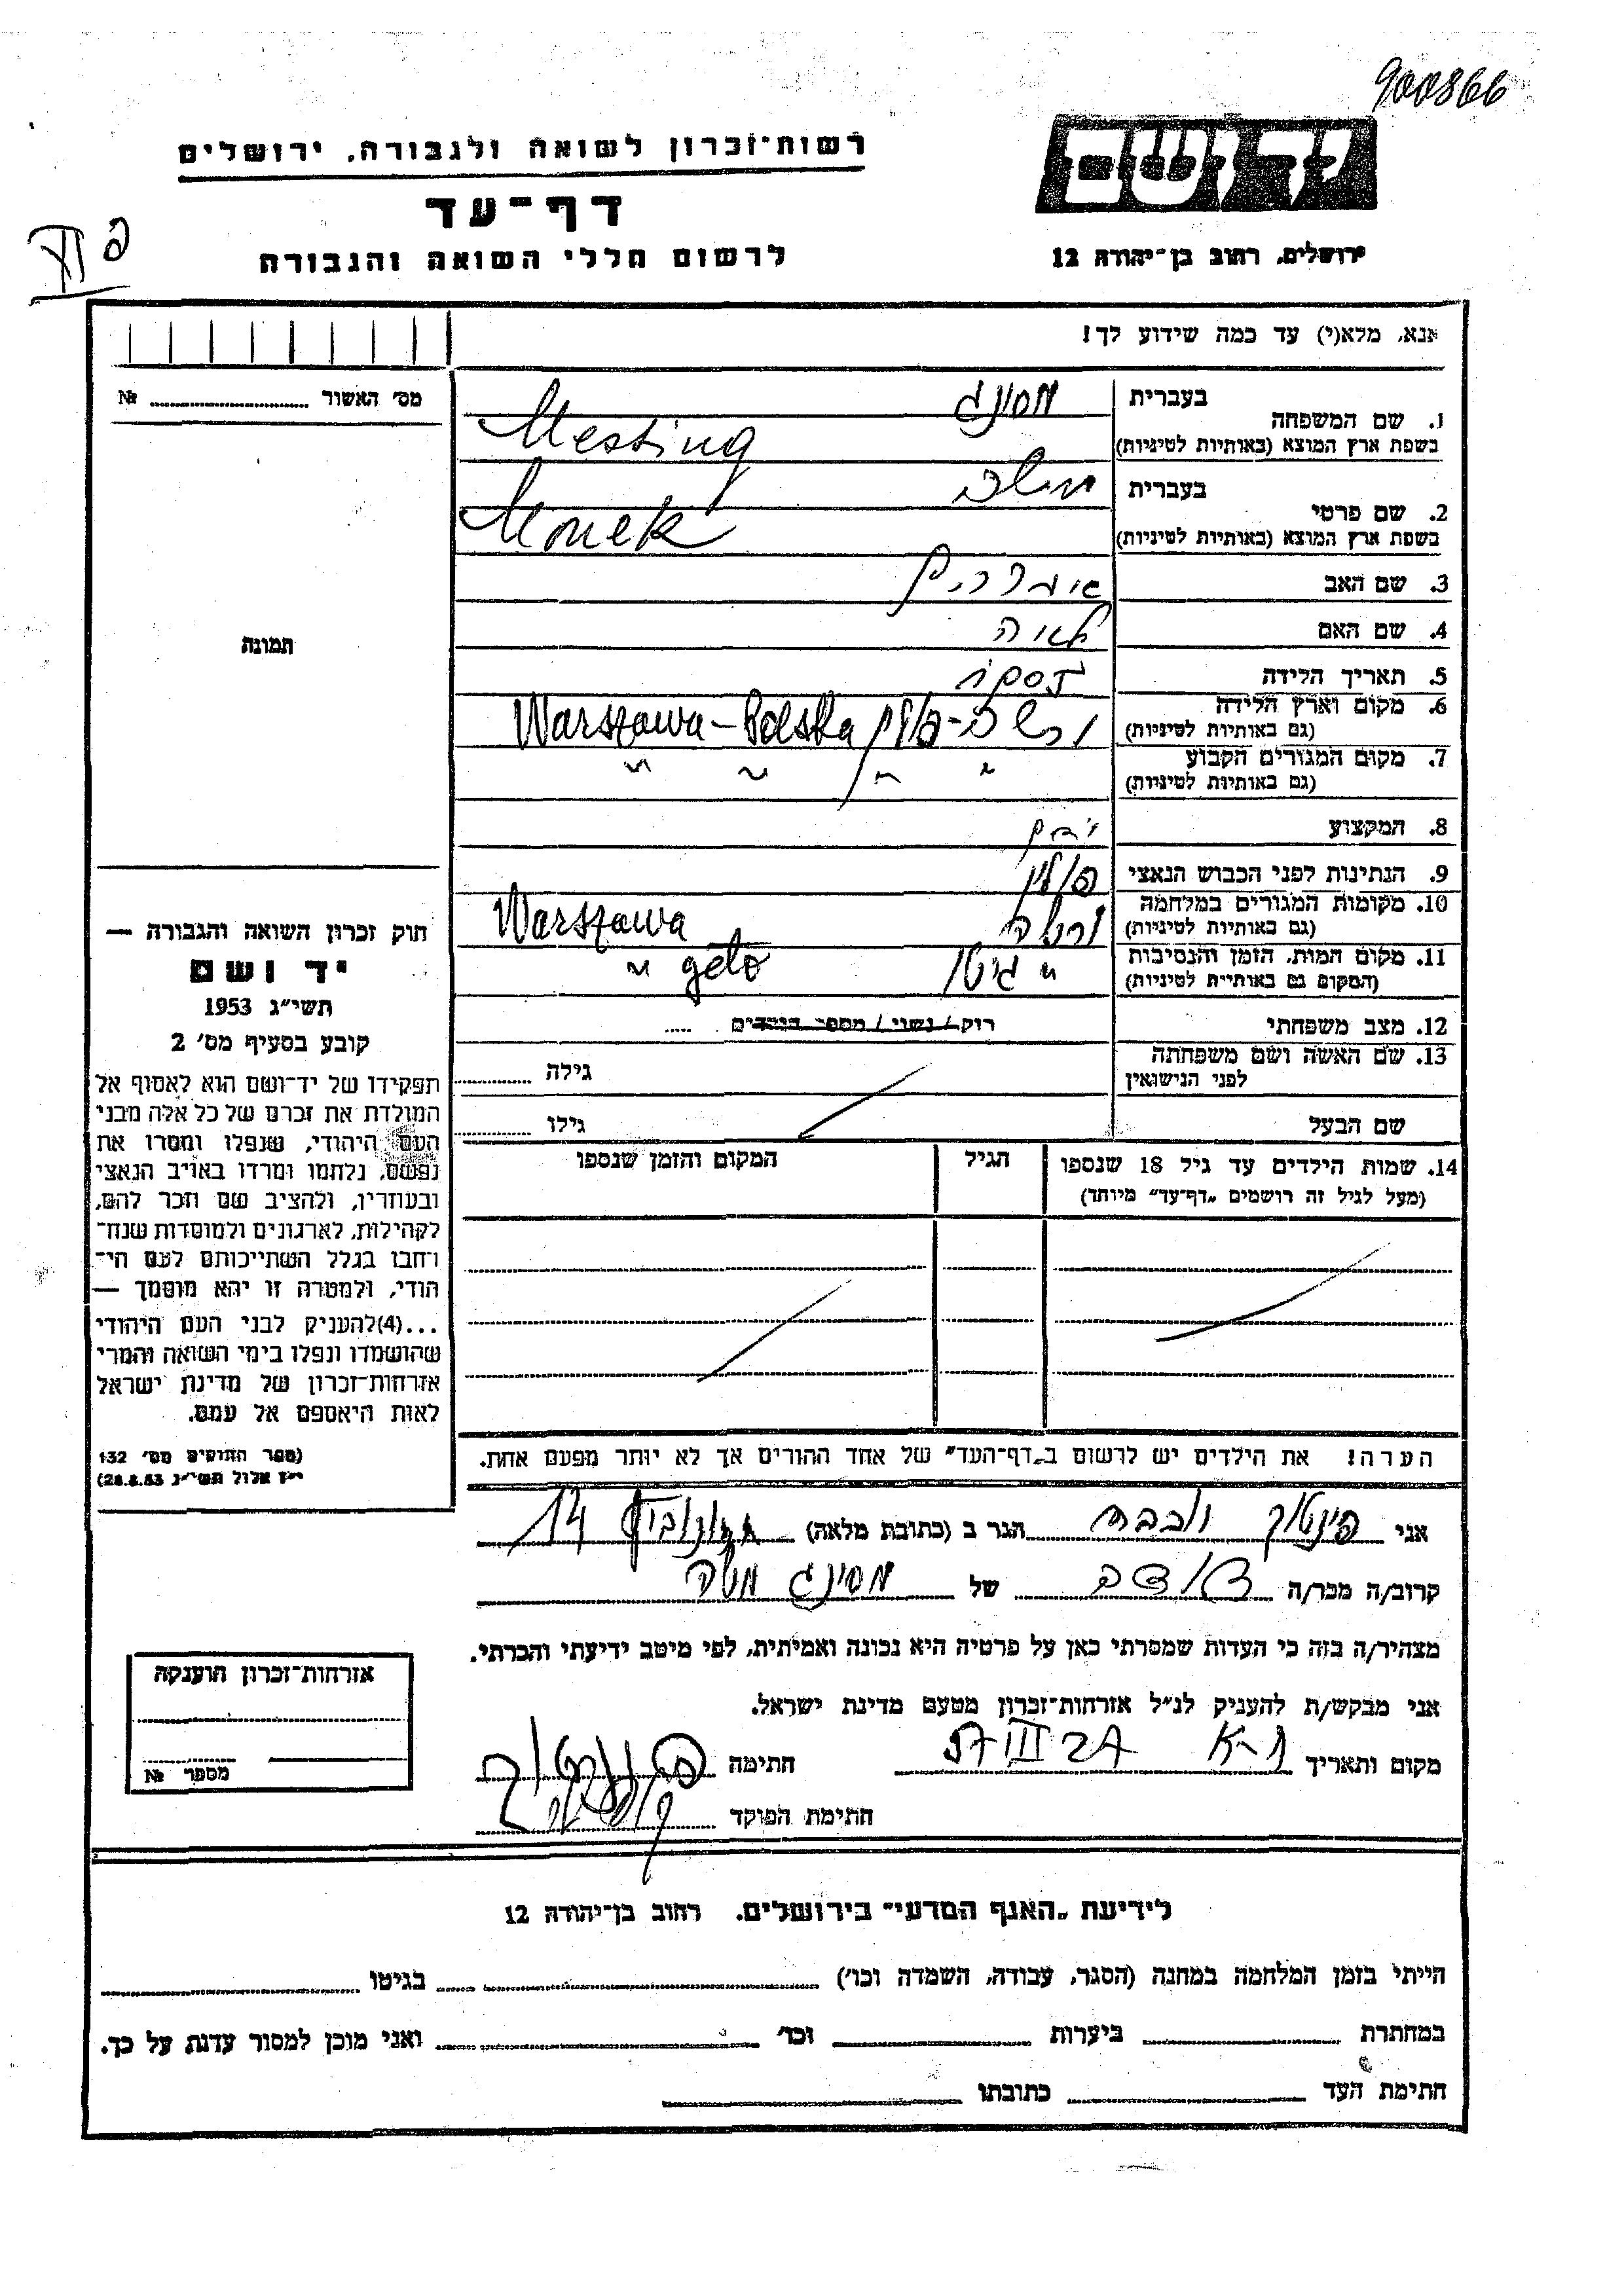 900866
יד ושם
רשות־זכרון לשואה ולגבורה, ירושלים
דף־עד
לרשום חללי השואה והגבורה
ירושלים, רחוב בן־יהודה 12
אנא, מלא(י) עד כמה שידוע לך!
מס׳ האשור ........ №
תמונה
1. שם המשפחה בעברית מסינג
בשפת ארץ המוצא (באותיות לטיניות) Messing
2. שם פרטי בעברית
בשפת ארץ המוצא (באותיות לטיניות) Monek
3. שם האב אפרים
4. שם האם לאה
5. תאריך הלידה
6. מקום וארץ הלידה (גם באותיות לטיניות) ורשה-פולין Warszawa - Polska
7. מקום המגורים הקבוע (גם באותיות לטיניות) " " " "
8. המקצוע
9. הנתינות לפני הכבוש הנאצי פולין
10. מקומות המגורים במלחמה (גם באותיות לטיניות) ורשה Warszawa
11. מקום המות, הזמן והנסיבות (המקום גם באותיות לטיניות) " גיטו " geto
12. מצב משפחתי רוק/נשוי/מספר הילדים .....
13. שם האשה ושם משפחתה לפני הנישואין גילה ........
שם הבעל גילו ........
14. שמות הילדים עד גיל 18 שנספו הגיל המקום והזמן שנספו
(מעל לגיל זה רושמים „דף־עד״ מיוחד)
הערה! את הילדים יש לרשום ב„דף־העד״ של אחד ההורים אך לא יותר מפעם אחת.
חוק זכרון השואה והגבורה —
יד ושם
תשי״ג 1953
קובע בסעיף מס׳ 2
תפקידו של יד־ושם הוא לאסוף אל
המולדת את זכרם של כל אלה מבני
העם היהודי, שנפלו ומסרו את
נפשם, נלחמו ומרדו באויב הנאצי
ובעוזריו, ולהציב שם וזכר להם,
לקהילות, לארגונים ולמוסדות שנח־
רחבו בגלל השתייכותם לעם הי־
הודי, ולמטרה זו יהא מוסמך —
...(4)להעניק לבני העם היהודי
שהושמדו ונפלו בימי השואה והמרי
אזרחות־זכרון של מדינת ישראל
לאות היאספם אל עמם.
(ספר החוקים מס׳ 132
י״ז אלול תשי״ג 28.8.53)
אני הגר ב (כתובת מלאה) 14
קרוב/ה מכר/ה של מסינג
מצהיר/ה בזה כי העדות שמסרתי כאן על פרטיה היא נכונה ואמיתית, לפי מיטב ידיעתי והכרתי.
אני מבקש/ת להעניק לנ״ל אזרחות־זכרון מטעם מדינת ישראל.
מקום ותאריך ת-א 27 III 57 חתימה
חתימת הפוקד
אזרחות־זכרון הוענקה
מספר №
לידיעת „האגף המדעי״ בירושלים. רחוב בן־יהודה 12
הייתי בזמן המלחמה במחנה (הסגר, עבודה, השמדה וכו׳) ........ בגיטו ........
במחתרת ........ ביערות ........ וכו׳ ........ ואני מוכן למסור עדות על כך.
חתימת העד ........ כתובתו ........